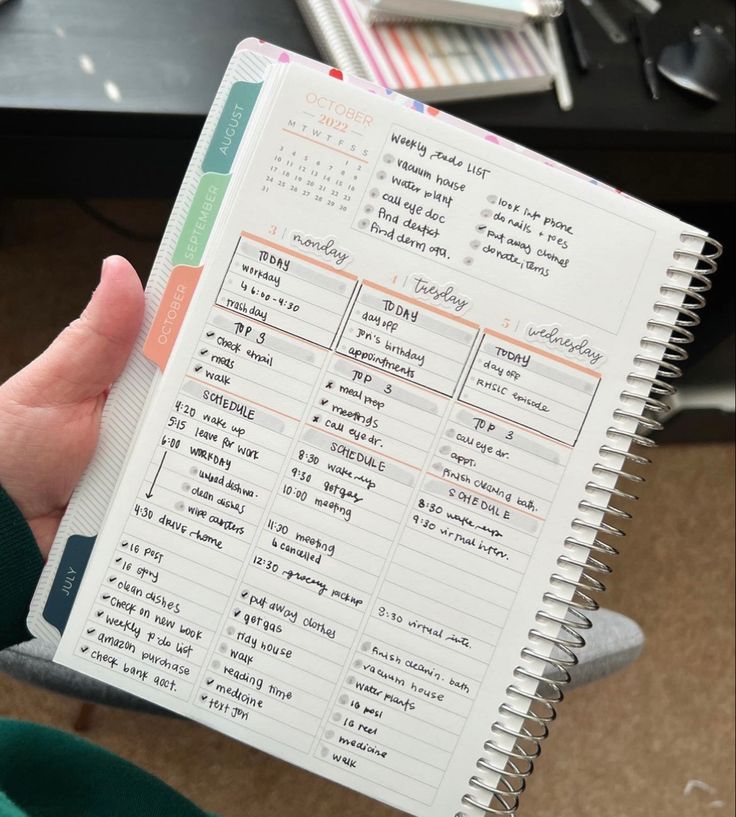 AUGUST
SEPTEMBER
OCTOBER
JULY
OCTOBER
2022
M T W T F S S
1 2
3 4 5 6 7 8 9
10 11 12 13 14 15 16
17 18 19 20 21 22 23
24 25 26 27 28 29 30
31
Weekly to do LIST
vacuum house
water plant
call eye doc
find dentist
find derm appt.
look into phone
do nails + toes
put away clothes
donate items
3 | monday
TODAY
workday
↳ 6:00-4:30
trash day
TOP 3
✓ check email
✓ meds
✓ walk
SCHEDULE
4:20 wake up
5:15 leave for work
6:00 WORKDAY
unload dishwa.
clean dishes
wipe counters
4:30 drive home
✓ IG post
✓ IG story
✓ clean dishes
✓ check on new book
✓ weekly to do list
✓ amazon purchase
✓ check bank acct.
4 | tuesday
TODAY
day off
Jon's birthday
appointments
TOP 3
x meal prep
✓ meetings
x call eye dr.
SCHEDULE
8:30 wake-up
9:30 get gas
10:00 meeting
11:30 meeting
↳ cancelled
12:30 grocery pickup
✓ put away clothes
✓ get gas
tidy house
walk
reading time
✓ medicine
✓ text Jon
5 | wednesday
TODAY
day off
RHSLC episode
TOP 3
call eye dr.
appt.
finish cleaning bath.
SCHEDULE
8:30 wake-up
9:30 virtual interv.
3:30 virtual inte.
finish cleanin. bath
vacuum house
water plants
IG post
IG reel
medicine
walk